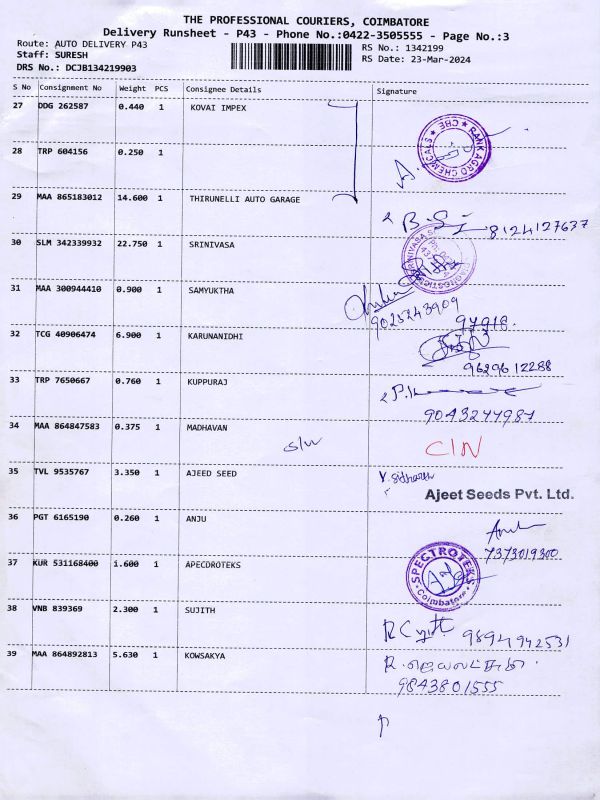 THE PROFESSIONAL COURIERS, COIMBATORE
Delivery Runsheet - P43 - Phone No.:0422-3505555 - Page No.:3
Route: AUTO DELIVERY P43
RS No.: 1342199
Staff: SURESH
RS Date: 23-Mar-2024
DRS No.: DCJB134219903
S No Consignment No Weight PCS Consignee Details Signature
27 DDG 262587 0.440 1 KOVAI IMPEX
RANK AGRO CHEMICALS ★ CBE ★
28 TRP 604156 0.250 1
29 MAA 865183012 14.600 1 THIRUNELLI AUTO GARAGE
8124127637
30 SLM 342339932 22.750 1 SRINIVASA
31 MAA 300944410 0.900 1 SAMYUKTHA
9025243909
97918.
32 TCG 40906474 6.900 1 KARUNANIDHI
9629612288
33 TRP 7650667 0.760 1 KUPPURAJ
9043277987
34 MAA 864847583 0.375 1 MADHAVAN
CIN
35 TVL 9535767 3.350 1 AJEED SEED
V. Sidharth
Ajeet Seeds Pvt. Ltd.
36 PGT 6165190 0.260 1 ANJU
7373019300
37 KUR 531168400 1.600 1 APECDROTEKS
SPECTROTEKS
★ Coimbatore ★
38 VNB 839369 2.300 1 SUJITH
9894942531
39 MAA 864892813 5.630 1 KOWSAKYA
9843801555